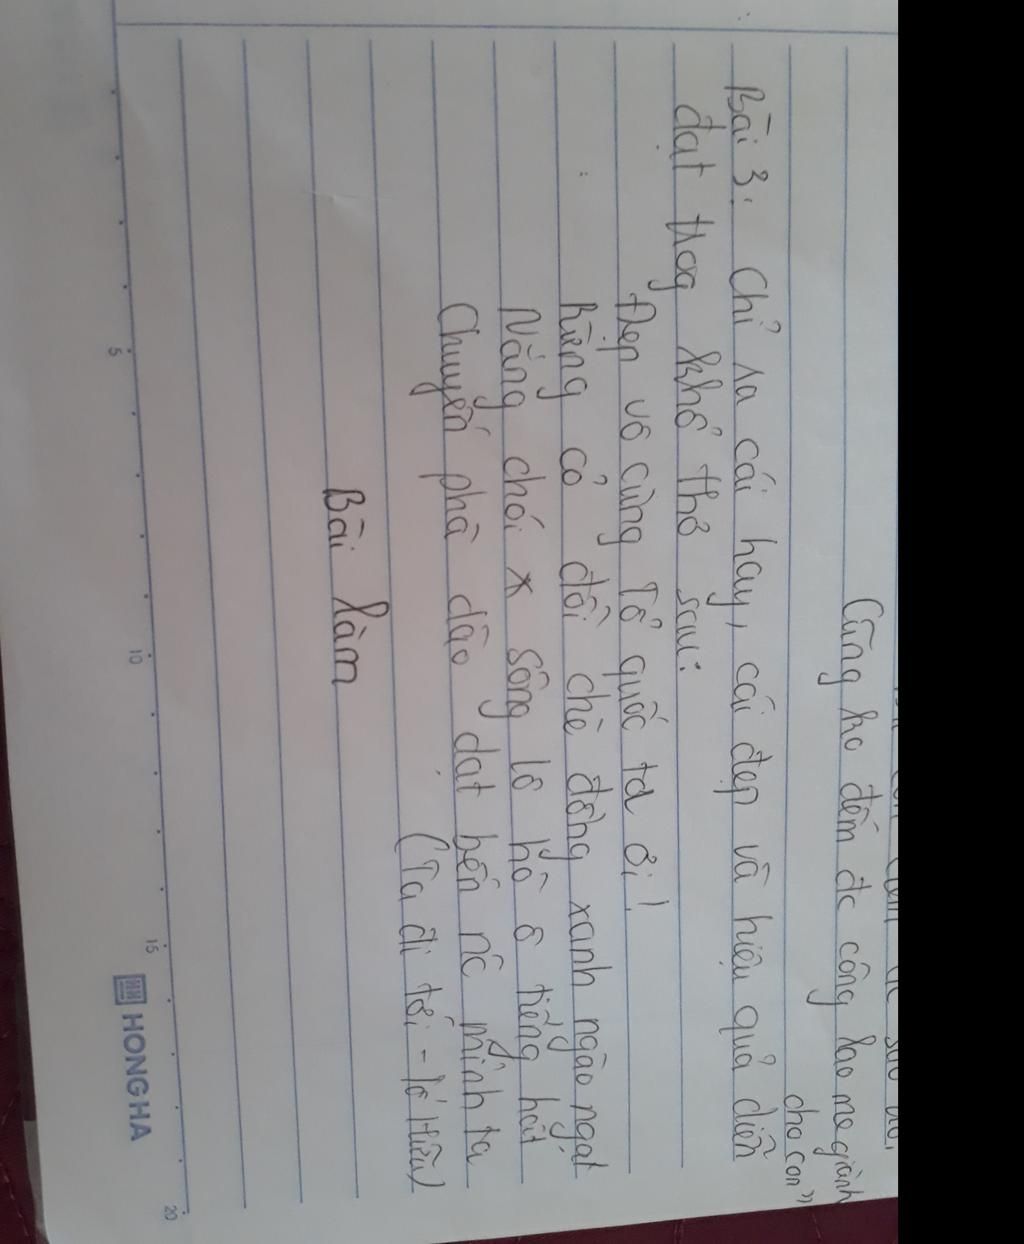 Cũng ko đếm đc công lao mẹ giành
cho con"
Bài 3. Chỉ ra cái hay, cái đẹp và hiệu quả diễn
đạt trog khổ thơ sau:
Đẹp vô cùng Tổ quốc ta ơi!
Rừng cỏ đồi chè đồng xanh ngào ngạt
Nắng chói x sông lô hô ô tiếng hát
Chuyến phà dào dạt bến nc mình ta
(Ta đi tới - Tố Hữu)
Bài làm
5
10
15
20
HONG HA